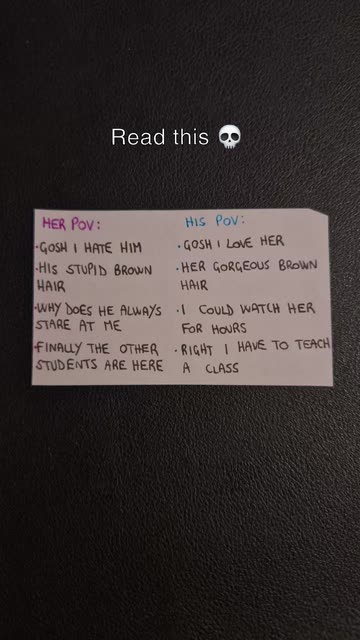 Read this 💀
HER POV:
• GOSH I HATE HIM
• HIS STUPID BROWN
HAIR
• WHY DOES HE ALWAYS
STARE AT ME
• FINALLY THE OTHER
STUDENTS ARE HERE
HIS POV:
• GOSH I LOVE HER
• HER GORGEOUS BROWN
HAIR
• I COULD WATCH HER
FOR HOURS
• RIGHT I HAVE TO TEACH
A CLASS